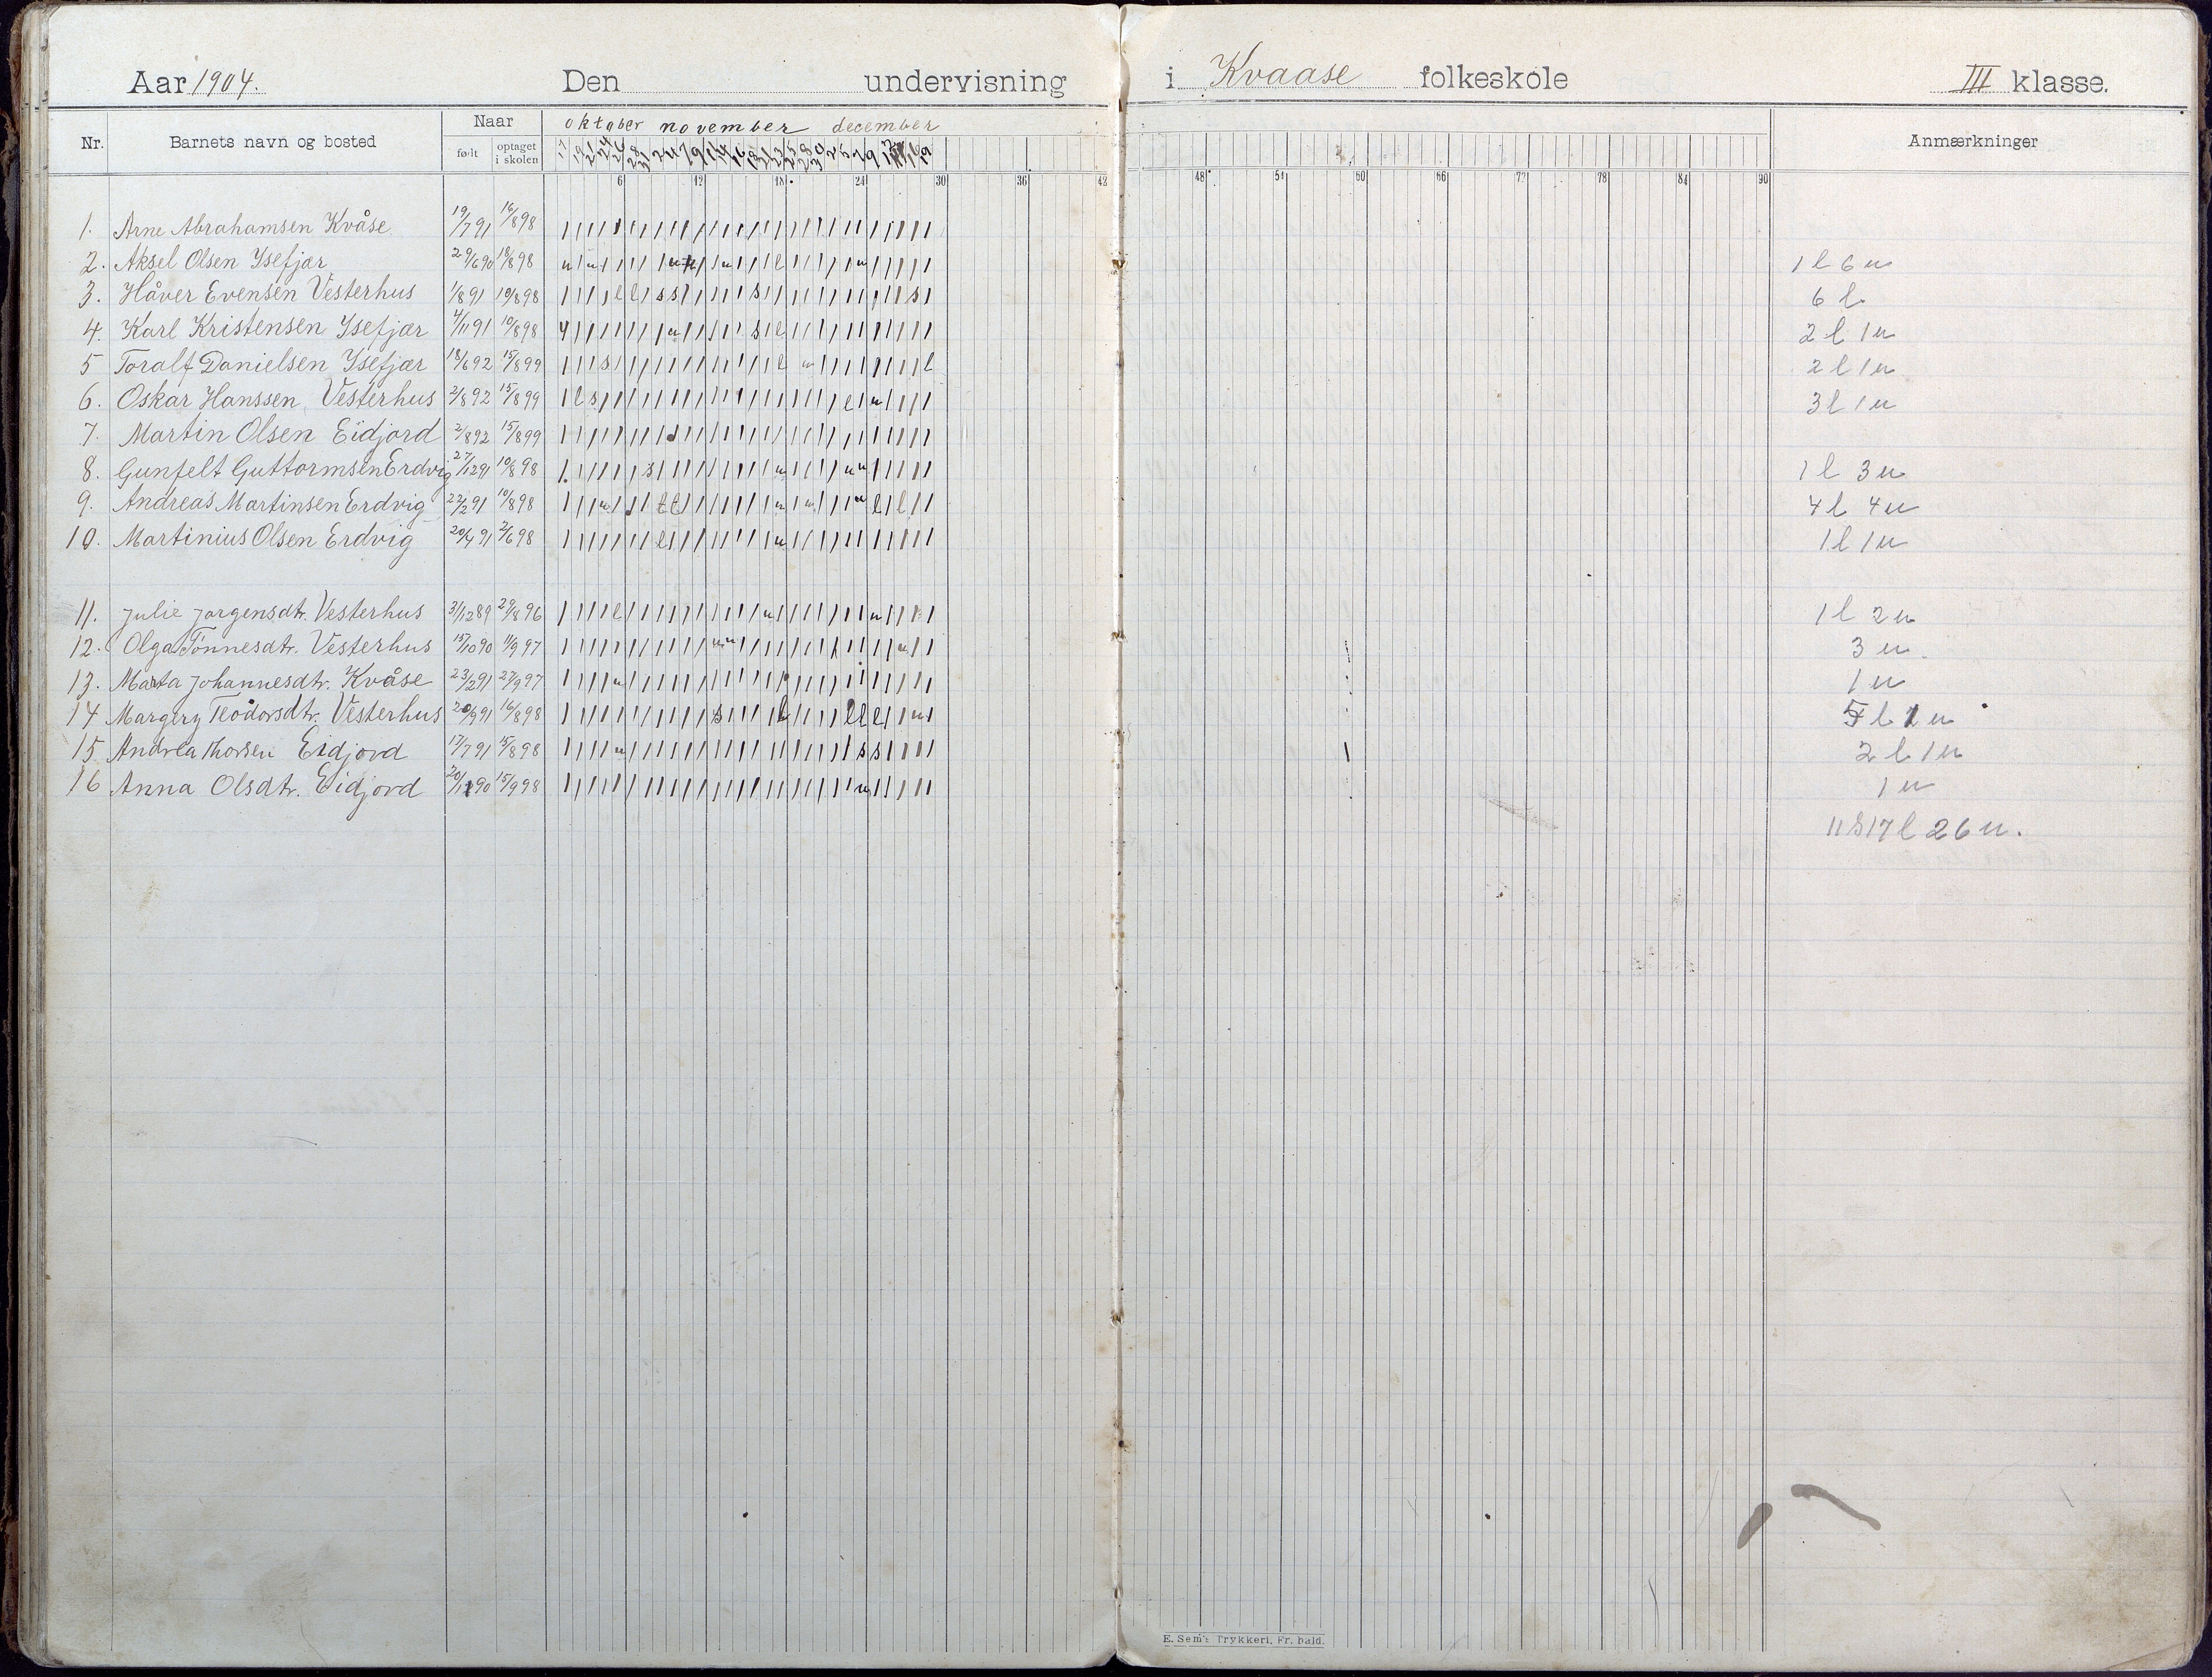 Aar 1904. Den undervisning i Kvaase folkeskole III klasse.
Nr. Barnets navn og bosted Naar oktober november december Anmærkninger
født optaget i skolen
6 12 18 24 30 36 42 48 54 60 66 72 78 84 90
1. Arne Abrahamsen Kvåse 19/7 91 16/8 98
2. Aksel Olsen Ysefjær 29/6 90 18/8 98 1 l 6 u
3. Håver Evensen Vesterhus 1/8 91 10/8 98 6 l
4. Karl Kristensen Ysefjær 4/11 91 10/8 98 2 l 1 u
5 Toralf Danielsen Ysefjær 18/6 92 15/8 99 2 l 1 u
6. Oskar Hanssen Vesterhus 2/8 92 15/8 99 3 l 1 u
7. Martin Olsen Eidjord 2/8 92 15/8 99
8. Gunfelt Guttormsen Erdvig 27/12 91 10/8 98 1 l 3 u
9. Andreas Martinsen Erdvig 22/2 91 10/8 98 4 l 4 u
10. Martinius Olsen Erdvig 20/4 91 2/6 98 1 l 1 u
11. Julie Jørgensdtr. Vesterhus 31/12 89 29/8 96 1 l 2 u
12. Olga Tønnesdtr. Vesterhus 15/10 90 11/9 97 3 u
13. Marta Johannesdtr. Kvåse 23/2 91 27/9 97 1 u
14 Margery Teodorsdtr. Vesterhus 20/9 91 16/8 98 5 l 1 u
15 Andrea Thorsen Eidjord 17/7 91 15/8 98 2 l 1 u
16 Anna Olsdtr. Eidjord 15/9 98 1 u
11 s 17 l 26 u.
E. Sem's Trykkeri, Fr. hald.